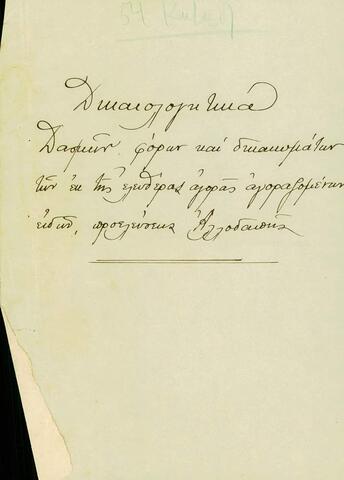 Δικαιολογητικά
Δασμῶν, φόρων καὶ δικαιωμάτων
τῶν ἐκ τῆς ἐλευθέρας ἀγορᾶς ἀγοραζομένων
εἰδῶν, προελεύσεως Ἀλλοδαπῆς